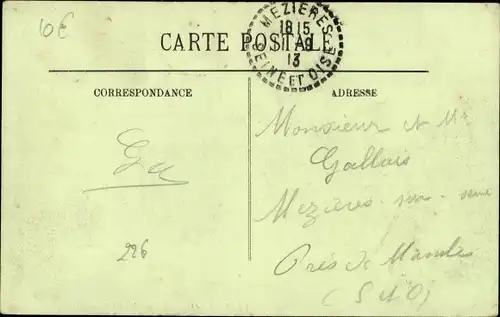 10€
MEZIERES
18 15
1 - 9
13
SEINE ET OISE
CARTE POSTALE
CORRESPONDANCE
ADRESSE
Monsieur et Me
Gallais
Mezières sur seine
Près de Mantes
(S et O)
226